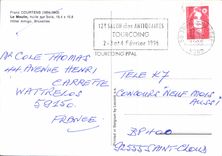 Franz COURTENS (1854-1943)
Le Moulin, huile sur bois, 18,4 x 10,8
Hôtel Amigo, Bruxelles
12e SALON des ANTIQUAIRES
TOURCOING
2-3 et 4 Février 1996
TOURCOING PPAL
Mr COLE THOMAS
44 AVENUE HENRI
CARRETTE
WATTRELOS
59150
FRANCE
TELE K7
CONCOURS "NEUF MOIS
AUSSI"
BP 400
92555 SAINT CLOUD